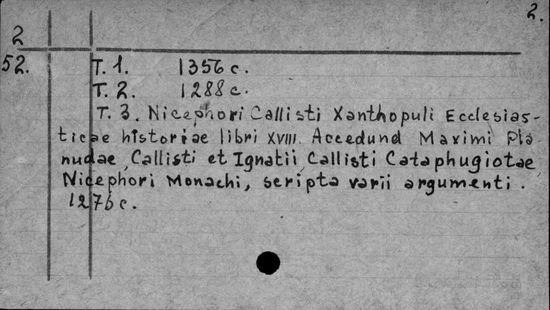 2.
2
52. T. 1. 1356 c.
T. 2. 1288 c.
T. 3. Nicephori Callisti Xanthopuli Ecclesias-
ticae historiae libri XVIII. Accedund Maximi Pla
nudae, Callisti et Ignatii, Callisti Cataphugiotae,
Nicephori Monachi, scripta varii argumenti.
1276 c.